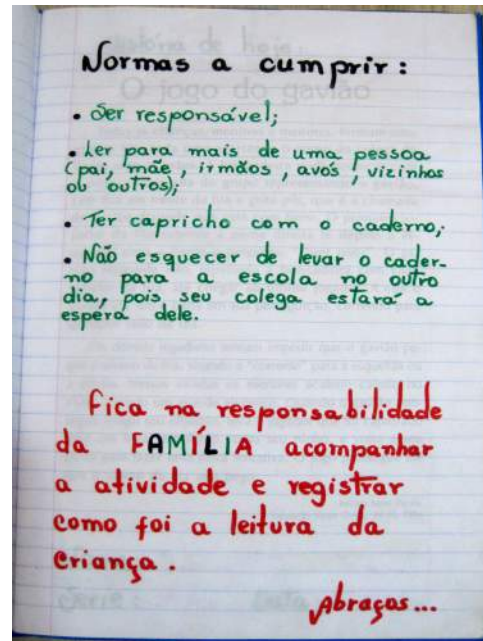 Normas a cumprir:
• Ser responsável;
• Ler para mais de uma pessoa
(pai, mãe, irmãos, avós, vizinhos
ou outros);
• Ter capricho com o caderno;
• Não esquecer de levar o cader-
no para a escola no outro
dia, pois seu colega estará a
espera dele.
Fica na responsabilidade
da FAMÍLIA acompanhar
a atividade e registrar
como foi a leitura da
criança.
Abraços...